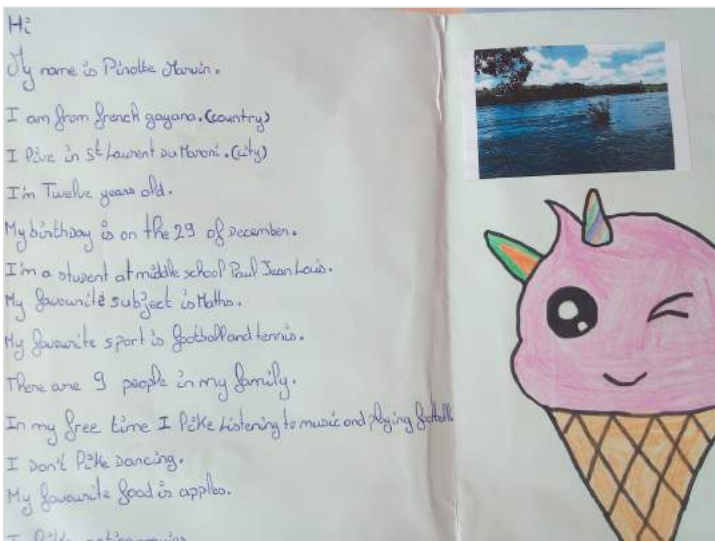 Hi
My name is Pinotte Marvin.
I am from french guyana. (country)
I live in St Laurent Du Maroni. (city)
I'm Twelve years old.
My birthday is on the 29 of December.
I'm a student at middle school Paul Jean Louis.
My favourite subject is Maths.
My favourite sport is football and tennis.
There are 9 people in my family.
In my free time I like Listening to music and playing football
I Don't like Dancing.
My favourite food is apples.
I like